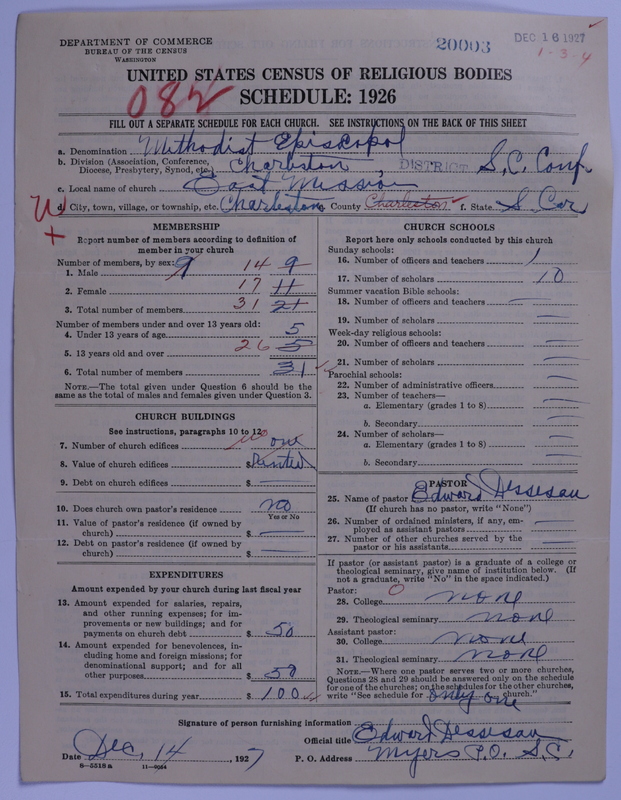 DEPARTMENT OF COMMERCE
BUREAU OF THE CENSUS
WASHINGTON
20003
DEC 16 1927
1-3-4
UNITED STATES CENSUS OF RELIGIOUS BODIES
082
SCHEDULE: 1926
FILL OUT A SEPARATE SCHEDULE FOR EACH CHURCH. SEE INSTRUCTIONS ON THE BACK OF THIS SHEET
a. Denomination Methodist Episcopol
b. Division (Association, Conference, Diocese, Presbytery, Synod, etc.) Charleston, DISTRICT S.C. Conf
c. Local name of church East Mission
d. City, town, village, or township, etc. Charleston e. County Charleston f. State S. Car
MEMBERSHIP
Report number of members according to definition of
member in your church
Number of members, by sex: 9
1. Male 14 9
2. Female 17 11
3. Total number of members 31 21
Number of members under and over 13 years old:
4. Under 13 years of age 5
5. 13 years old and over 26 5
6. Total number of members 31
NOTE.—The total given under Question 6 should be the
same as the total of males and females given under Question 3.
CHURCH BUILDINGS
See instructions, paragraphs 10 to 12
7. Number of church edifices no one
8. Value of church edifices $ Rented
9. Debt on church edifices $
10. Does church own pastor's residence no
Yes or No
11. Value of pastor's residence (if owned by
church) $
12. Debt on pastor's residence (if owned by
church) $
EXPENDITURES
Amount expended by your church during last fiscal year
13. Amount expended for salaries, repairs,
and other running expenses; for im-
provements or new buildings; and for
payments on church debt $ 50
14. Amount expended for benevolences, in-
cluding home and foreign missions; for
denominational support; and for all
other purposes $ 50
15. Total expenditures during year $ 100
CHURCH SCHOOLS
Report here only schools conducted by this church
Sunday schools:
16. Number of officers and teachers 1
17. Number of scholars 10
Summer vacation Bible schools:
18. Number of officers and teachers
19. Number of scholars
Week-day religious schools:
20. Number of officers and teachers
21. Number of scholars
Parochial schools:
22. Number of administrative officers
23. Number of teachers—
a. Elementary (grades 1 to 8)
b. Secondary
24. Number of scholars—
a. Elementary (grades 1 to 8)
b. Secondary
PASTOR
25. Name of pastor Edward Dessesau
(If church has no pastor, write "None")
26. Number of ordained ministers, if any, em-
ployed as assistant pastors
27. Number of other churches served by the
pastor or his assistants
If pastor (or assistant pastor) is a graduate of a college or
theological seminary, give name of institution below. (If
not a graduate, write "No" in the space indicated.)
Pastor: 0
28. College none
29. Theological seminary none
Assistant pastor:
30. College none
31. Theological seminary none
NOTE.—Where one pastor serves two or more churches,
Questions 28 and 29 should be answered only on the schedule
for one of the churches; on the schedules for the other churches,
write "See schedule for only one church."
Signature of person furnishing information
Official title Edward Dessesau
Date Dec. 14, 1927 P. O. Address Myers P.O. S.C.
8—5518a 11—9054